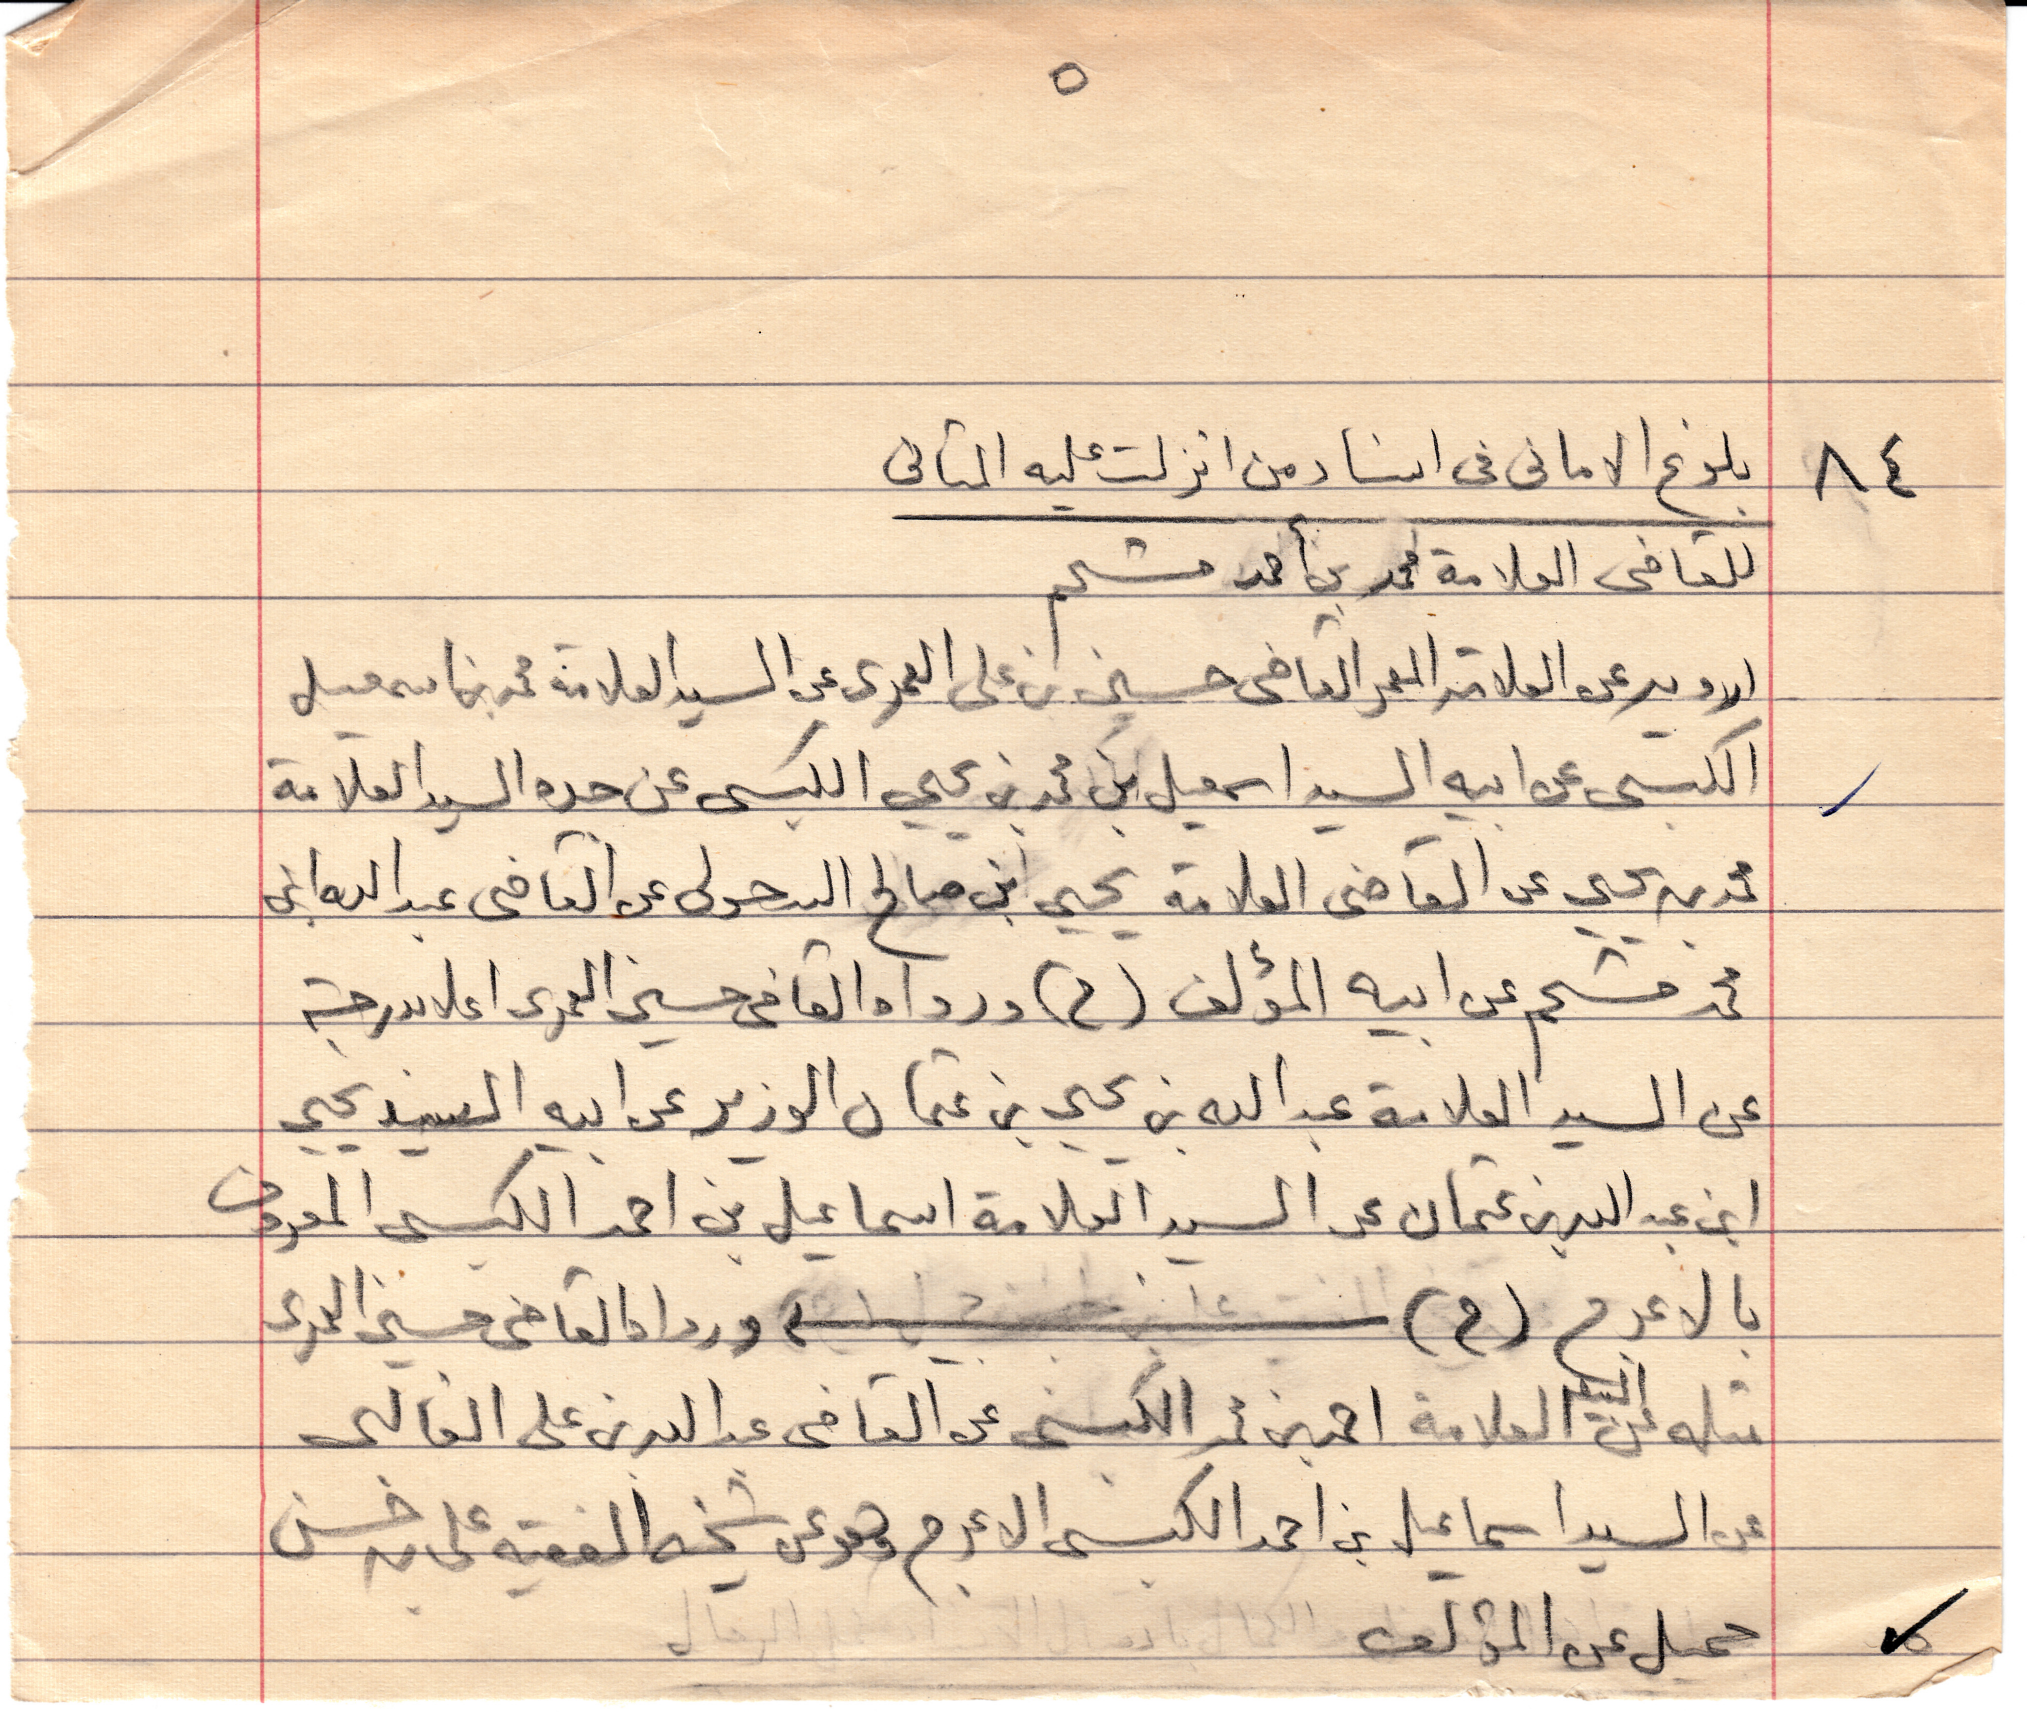 ٥
٨٤ بلوغ الامانى فى اسناد من انزلت عليه المثانى
للقاضى العلامة محمد بن أحمد مشحم
ارويه عن العلامة المعمر القاضى حسين بن على العمرى عن السيد العلامة محمد بن اسمعيل
الكبسى عن ابيه السيد اسمعيل بن محمد بن يحيي الكبسى عن جده السيد العلامة
محمد بن يحيي عن القاضى العلامة يحيي بن صالح السحولى عن القاضى عبد الله ابن
محمد مشحم عن ابيه المؤلف (ح) ورواه القاضى حسين العمرى اعلا بدرجة
عن السيد العلامة عبد الله بن يحيي بن عثمان الوزير عن ابيه السيد يحيي
ابن عبد الله بن عثمان عن السيد العلامة اسماعيل بن احمد الكبسى المعروف
بالاعرج (ح) ورواه القاضى حسين العمرى
مثله عن السيد العلامة احمد بن محمد الكبسى عن القاضى عبد الله بن على الغالبى
عن السيد اسماعيل بن احمد الكبسى الاعرج وهو عن شيخه الفقيه على بن حسن
جميل عن المؤلف